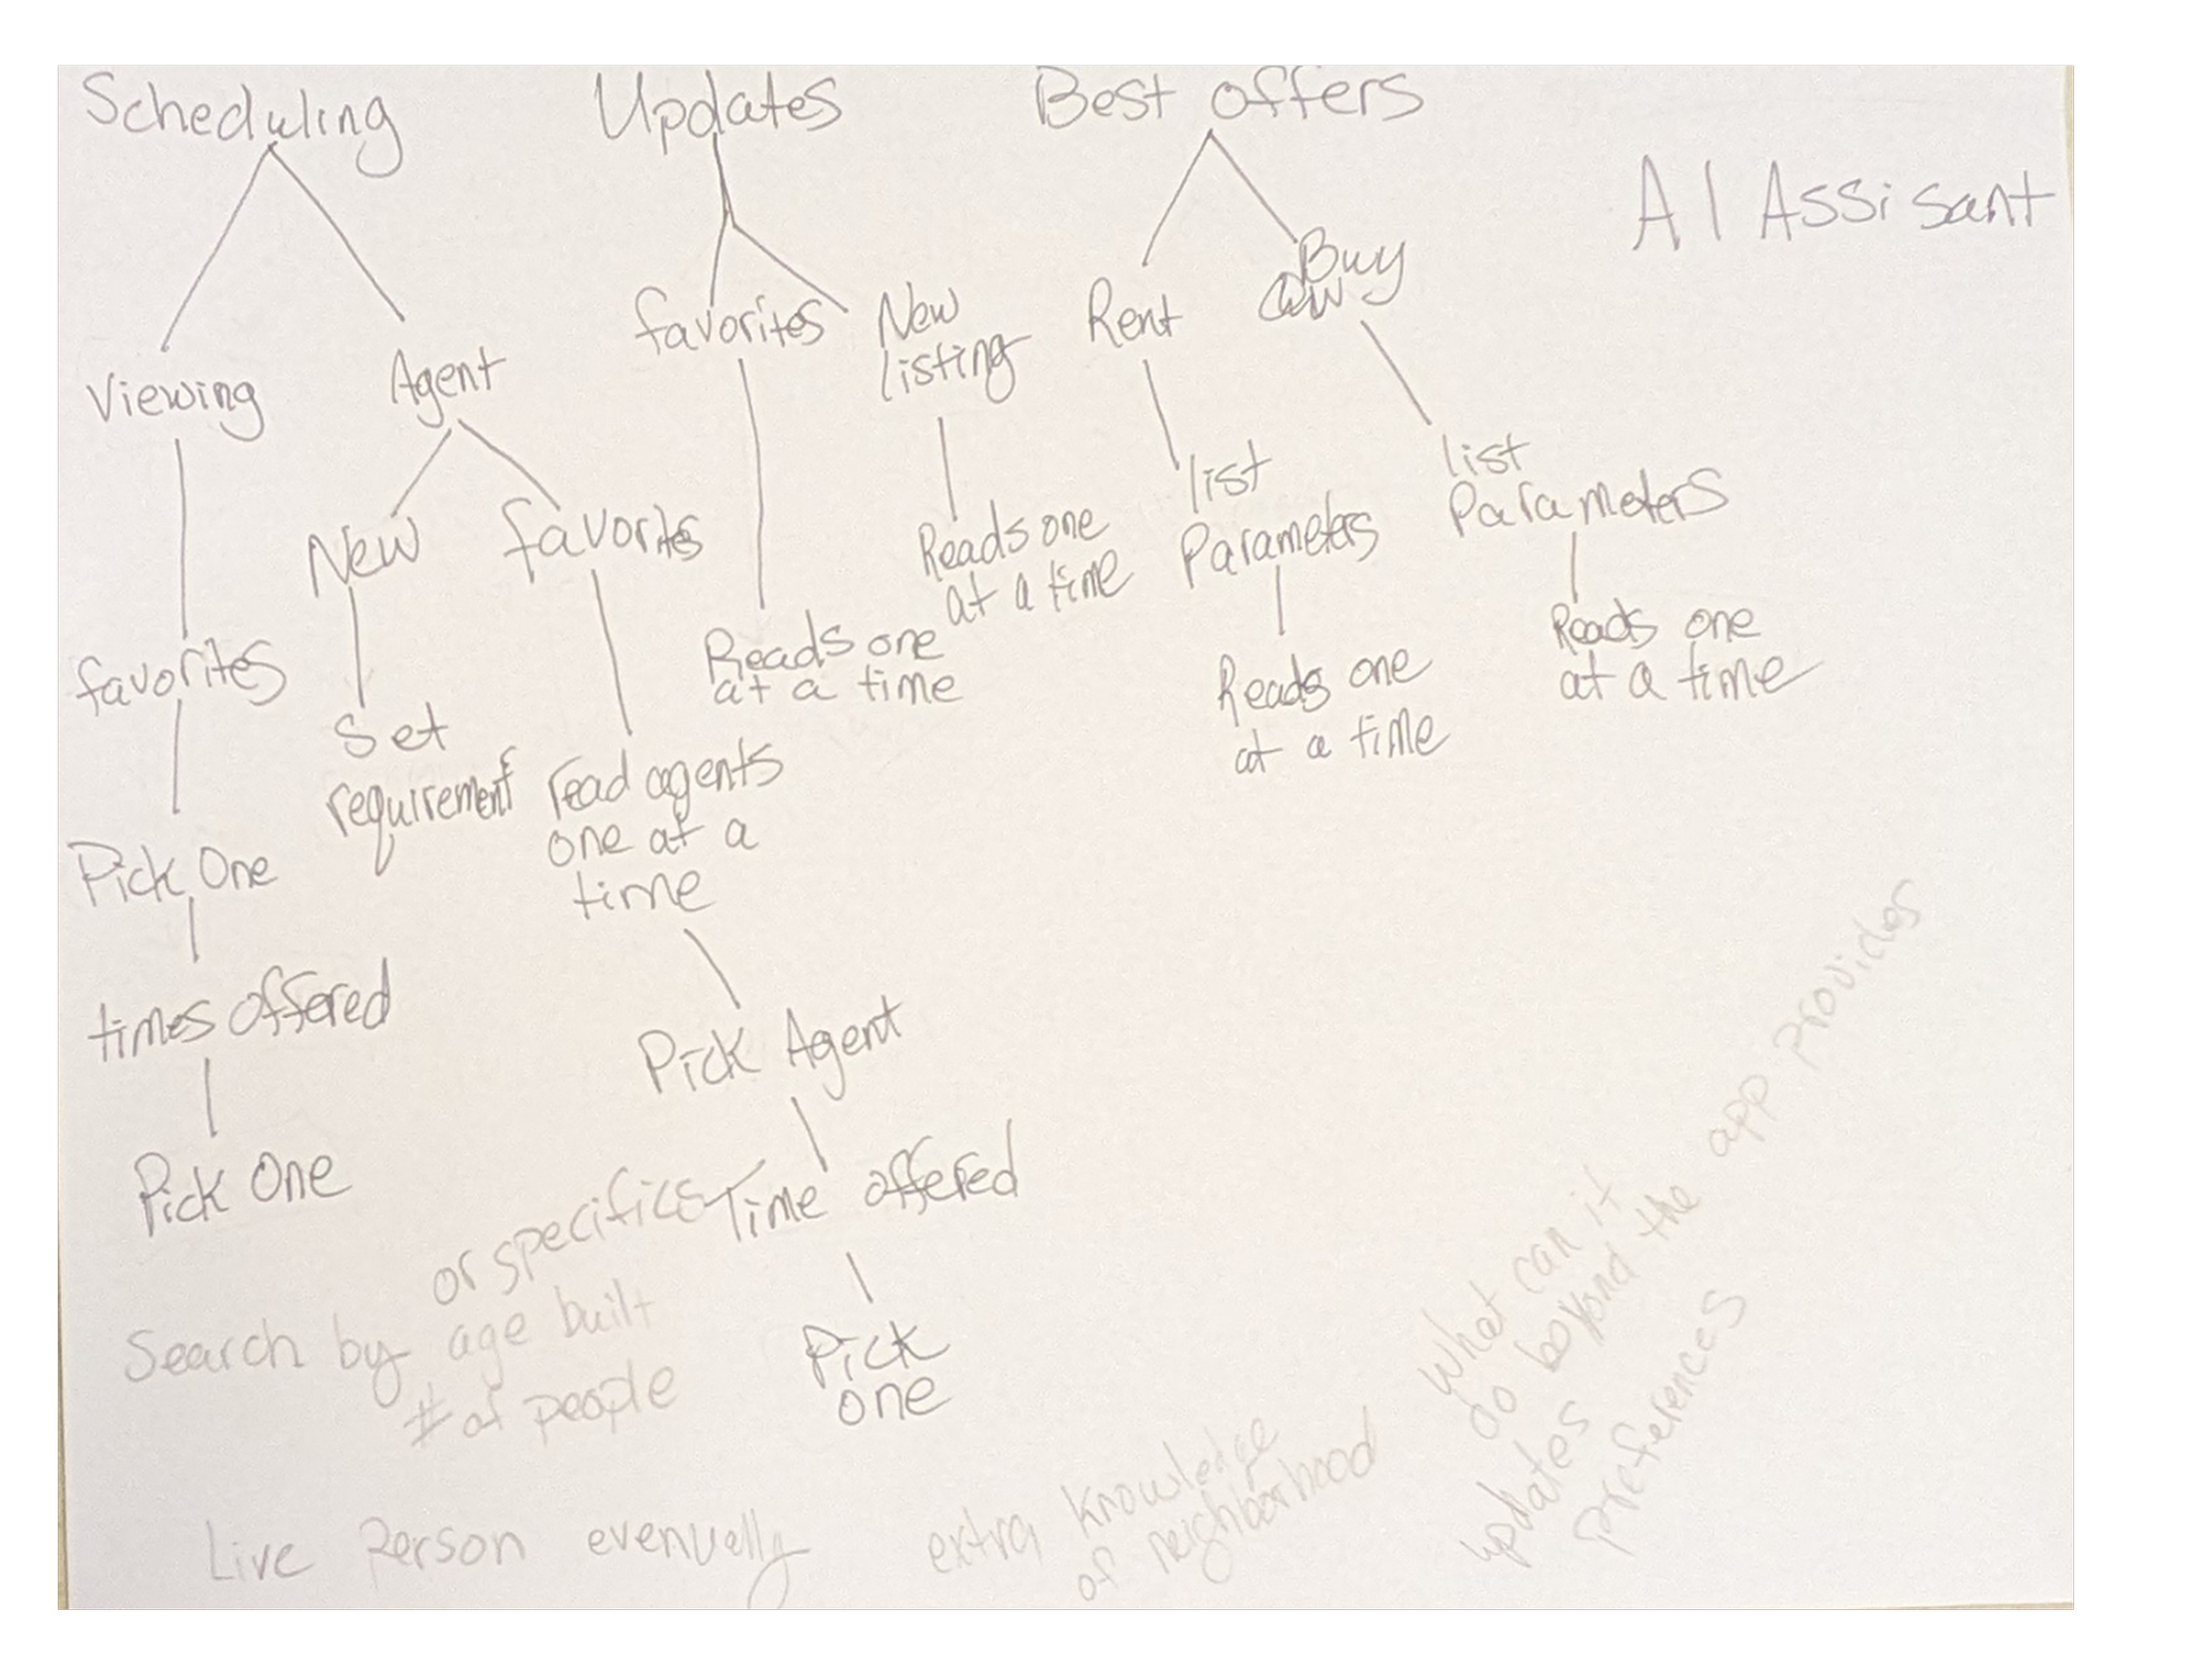 Scheduling
Updates
Best offers
AI Assisant
Viewing
Agent
favorites
New
listing
Rent
Buy
New
favorites
Reads one
at a time
list
Parameters
list
Parameters
favorites
Set
requirement
read agents
one at a
time
Reads one
at a time
Reads one
at a time
Reads one
at a time
Pick One
times offered
Pick Agent
Pick One
Time offered
Pick
one
or specifics
Search by age built
# of people
Live Person evenually
extra knowledge
of neighborhood
What can it
do beyond the app provides
updates
preferences